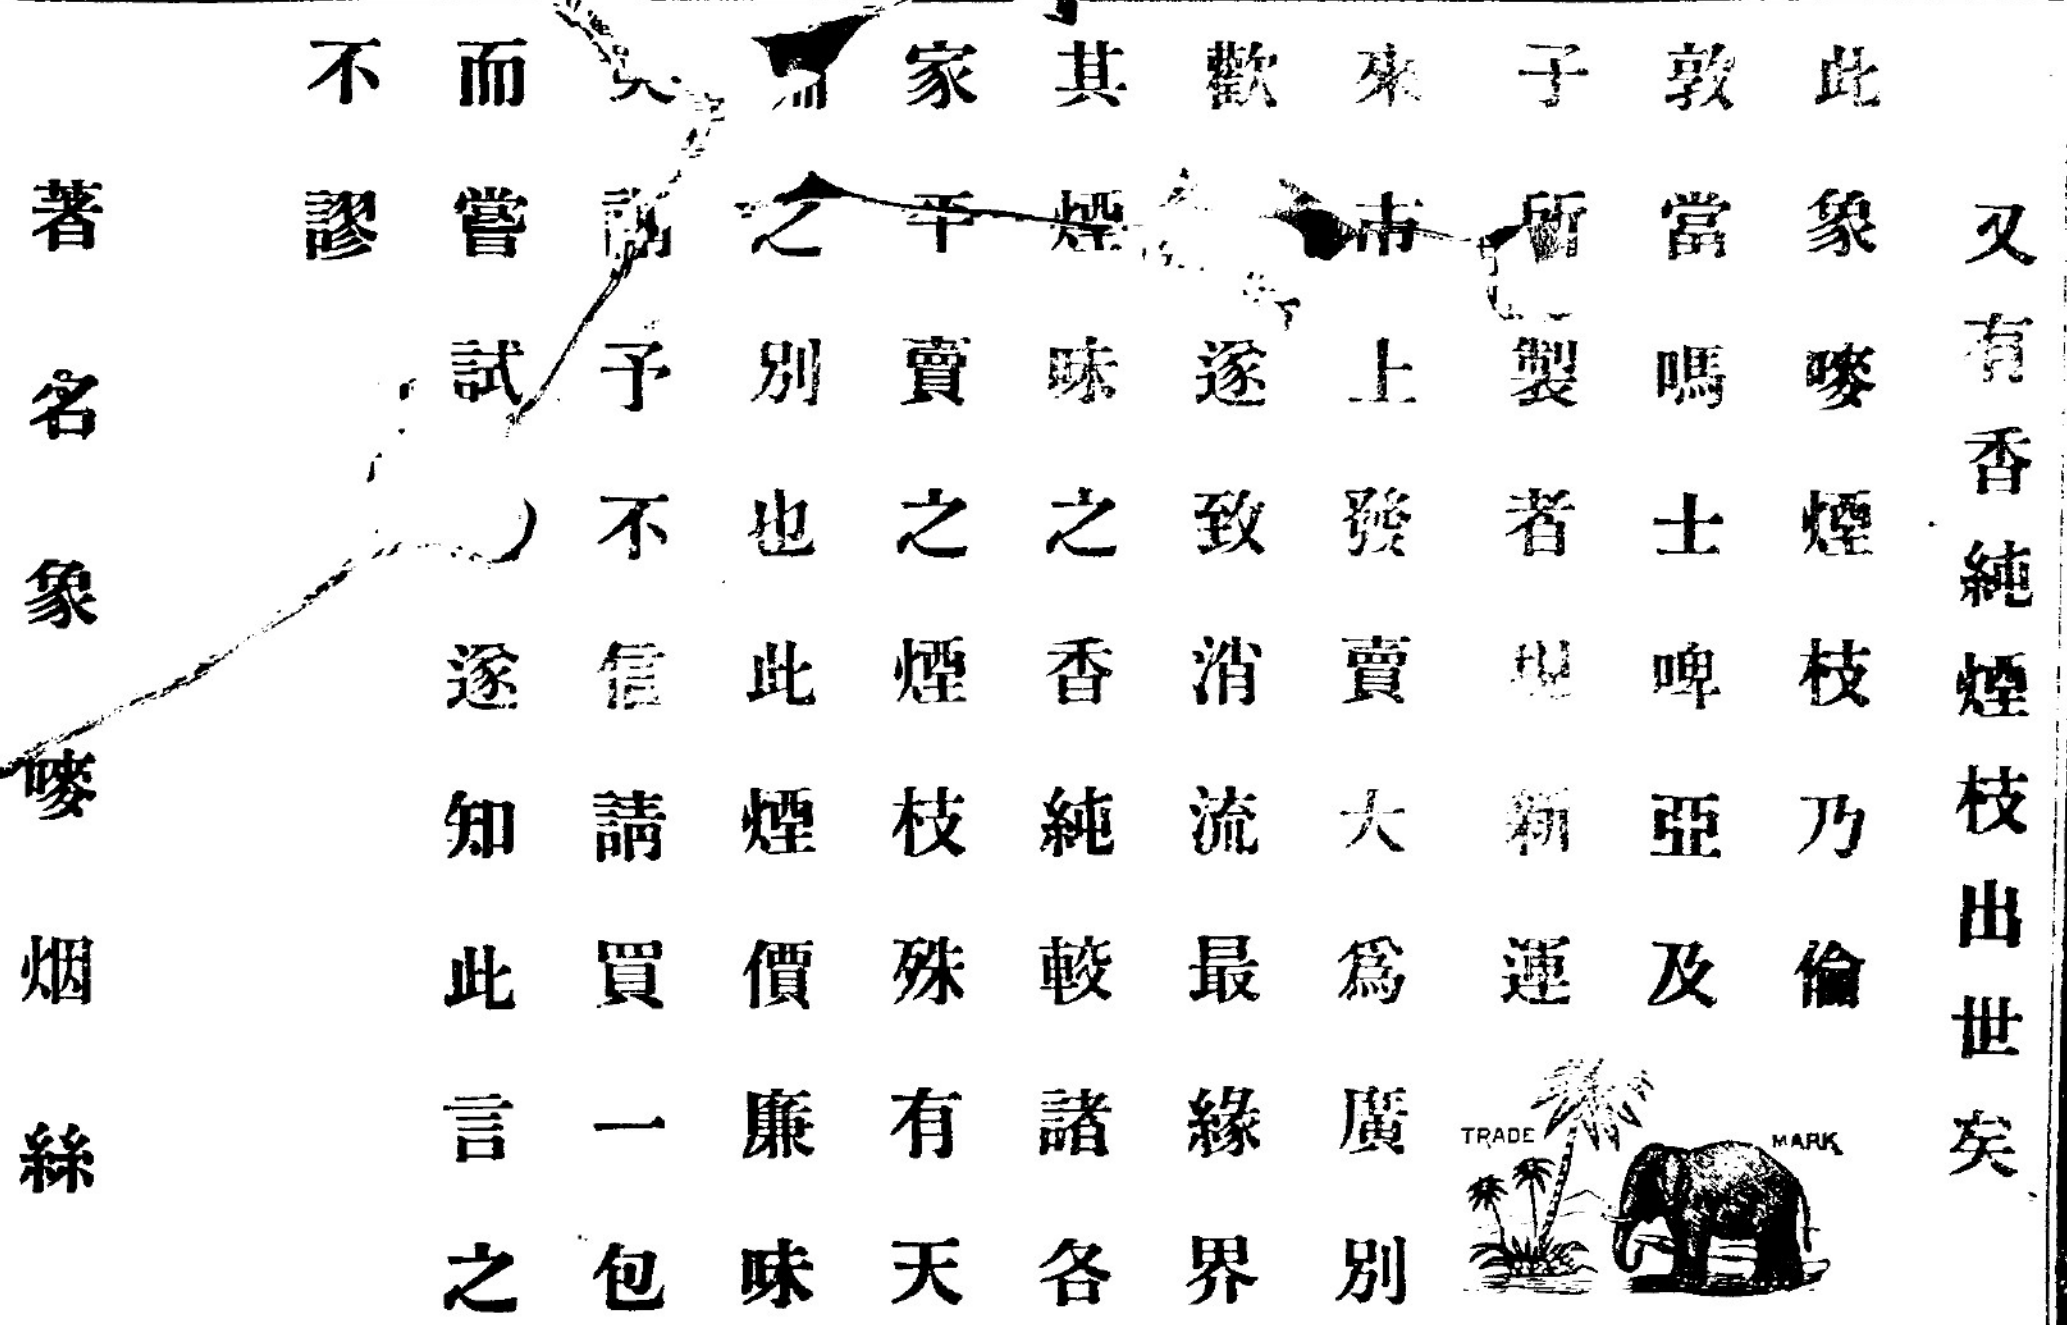 又有香純煙枝出世矣
此象嘜煙枝乃倫
敦當嗎士啤亞及
子所製者現新運
來市上發賣大爲廣別
歡遂致消流最緣界
其煙味之香純較諸各
家平賣之煙枝殊有天
之別也此煙價廉味
謂予不信請買一包
而嘗試遂知此言之
不謬
著名象嘜烟絲
TRADE MARK